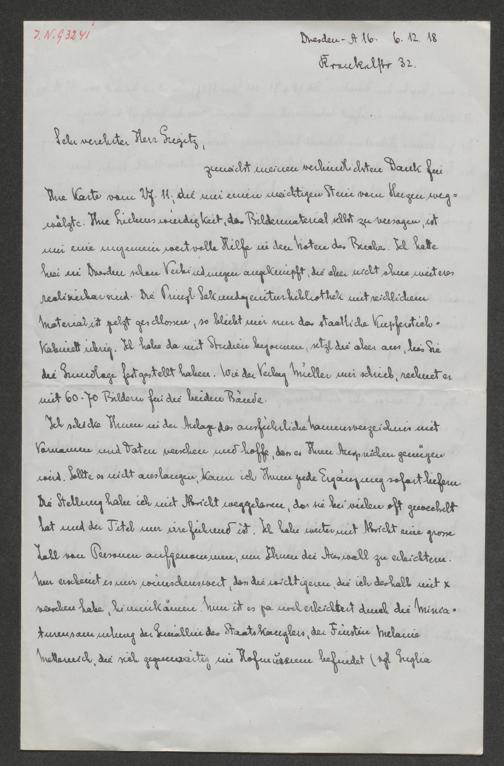 J.N. 93241
Dresden-A 16. 6.12.18
Krenkelstr 32.
Sehr verehrter Herr Gregitz,
zunächst meinen verbindlichsten Dank für
Ihre Karte vom 27.11., die mir einen mächtigen Stein vom Herzen weg=
wälzte. Ihre Liebenswürdigkeit, das Bildermaterial selbst zu besorgen, ist
mir eine ungemein wertvolle Hilfe in den Nöten des Buches. Ich hatte
hier in Dresden schon Verbindungen angeknüpft, die aber nicht ohne weiteres
realisierbar sind. Die Prinzl Sekundogeniturbibliothek mit reichlichem
Material ist jetzt geschlossen, so bleibt mir nur das staatliche Kupferstich-
Kabinett übrig. Ich habe da mit Studien begonnen, setze die aber aus, bis Sie
die Grundlage festgestellt haben. Wie der Verlag Müller mir schrieb, rechnet er
mit 60-70 Bildern für die beiden Bände.
Ich schicke Ihnen in der Anlage das ausführliche Namensverzeichnis mit
Vornamen und Daten versehen und hoffe, dass es Ihren Ansprüchen genügen
wird. Sollte es nicht auslangen, kann ich Ihnen jede Ergänzung sofort liefern
Die Stellung habe ich mit Absicht weggelassen, da sie bei vielen oft gewechselt
hat und der Titel nur irreführend ist. Ich habe weiter mit Absicht eine grosse
Zahl von Personen aufgenommen, um Ihnen die Auswahl zu erleichtern.
Nur erscheint es mir wünschenswert, dass die wichtigeren, die ich deshalb mit x
versehen habe, hineinkämen. Nun ist es ja noch erleichtert durch die Minia-
turensammlung der Gemahlin des Staatskanzlers, der Fürstin Melanie
Metternich, die sich gegenwärtig im Hofmuseum befindet (vgl